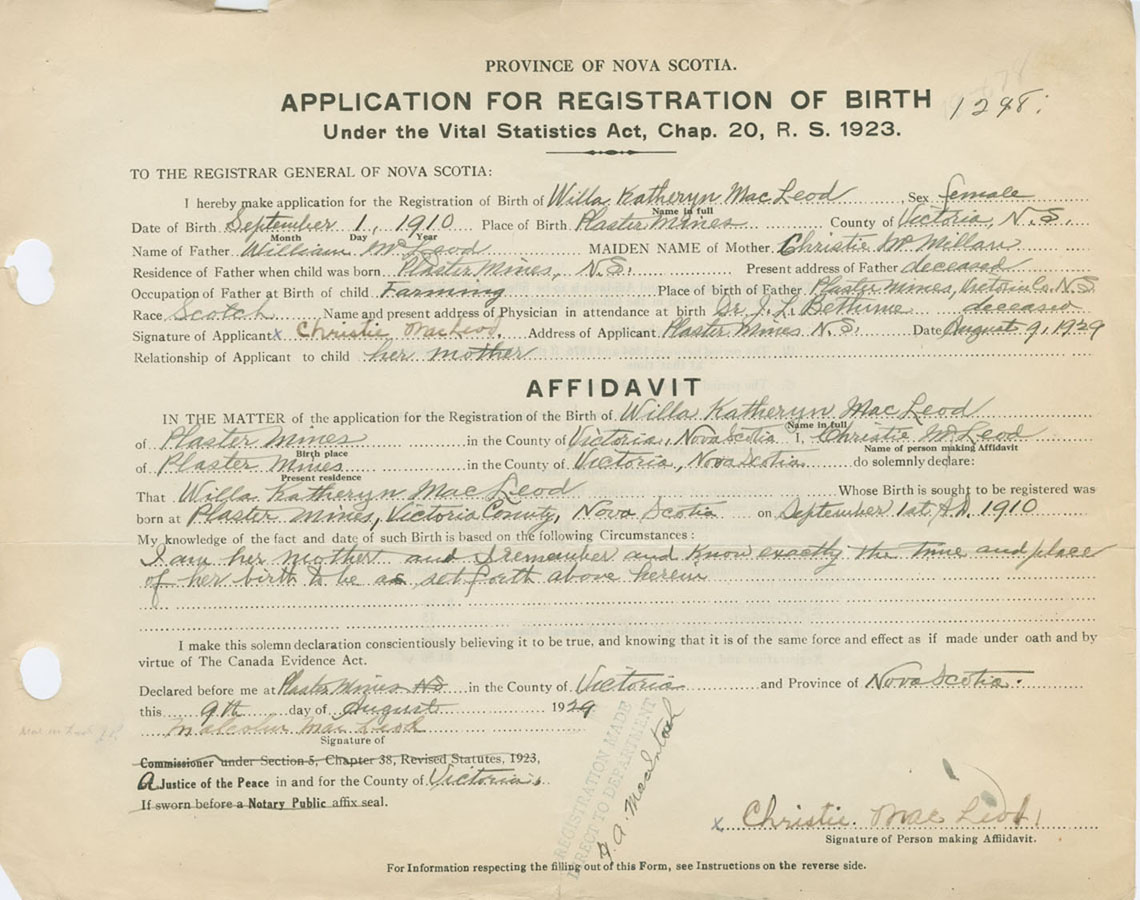 PROVINCE OF NOVA SCOTIA.
APPLICATION FOR REGISTRATION OF BIRTH 1248
Under the Vital Statistics Act, Chap. 20, R. S. 1923.
TO THE REGISTRAR GENERAL OF NOVA SCOTIA:
I hereby make application for the Registration of Birth of Willa Katheryn MacLeod Sex female
Name in full
Date of Birth September 1, 1910 Place of Birth Plaster Mines County of Victoria, N.S.
Month Day Year
Name of Father William McLeod MAIDEN NAME of Mother Christie McMillan
Residence of Father when child was born Plaster Mines, N.S. Present address of Father deceased
Occupation of Father at Birth of child Farming Place of birth of Father Plaster Mines, Victoria Co. N.S
Race Scotch Name and present address of Physician in attendance at birth Dr. J. L. Bethune deceased
Signature of Applicant x Christie MacLeod. Address of Applicant Plaster Mines N.S. Date August 9, 1929
Relationship of Applicant to child her mother
AFFIDAVIT
IN THE MATTER of the application for the Registration of the Birth of Willa Katheryn MacLeod
Name in full
of Plaster Mines in the County of Victoria, Nova Scotia I, Christie McLeod
Birth place Name of person making Affidavit
of Plaster Mines in the County of Victoria, Nova Scotia do solemnly declare:
Present residence
That Willa Katheryn MacLeod Whose Birth is sought to be registered was
born at Plaster Mines, Victoria County, Nova Scotia on September 1st, A.D. 1910
My knowledge of the fact and date of such Birth is based on the following Circumstances:
I am her mother and I remember and know exactly the time and place
of her birth to be as set forth above herein
I make this solemn declaration conscientiously believing it to be true, and knowing that it is of the same force and effect as if made under oath and by
virtue of The Canada Evidence Act.
Declared before me at Plaster Mines NS in the County of Victoria and Province of Nova Scotia.
this 9th day of August 1929
Malcolm MacLeod
Signature of
Commissioner under Section 5, Chapter 38, Revised Statutes, 1923,
A Justice of the Peace in and for the County of Victoria.
If sworn before a Notary Public affix seal.
REGISTRATION MADE
DIRECT TO DEPARTMENT
A. MacIntosh
x Christie MacLeod
Signature of Person making Affidavit.
For Information respecting the filling out of this Form, see Instructions on the reverse side.